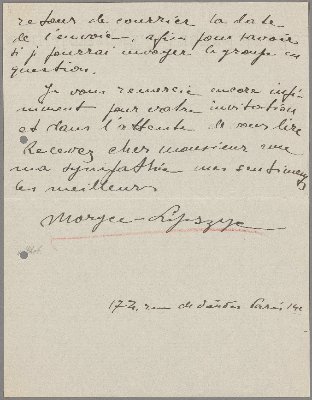 retour de courrier la date
de l'envoie, afin pour savoir
si je pourrai envoyer le groupe en
question.
Je vous remercie encore infi-
niment pour votre invitation
et dans l'attente de vous lire
Recevez cher monsieur avec
ma sympathie mes sentiments
les meilleurs
Moryce Lipszyc
172, rue de Paris 14e